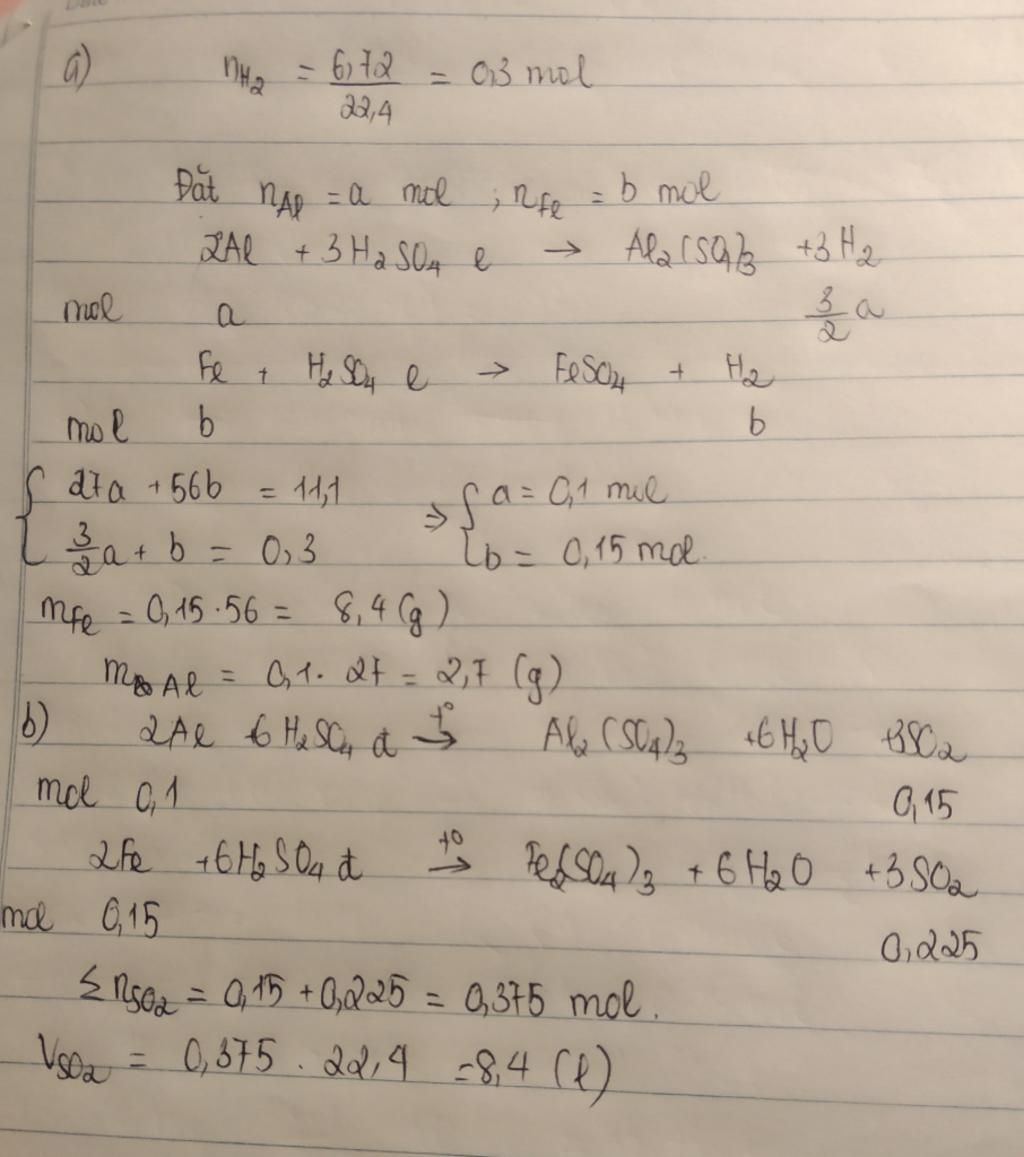 a) nH2 = 6,72/22,4 = 0,3 mol
Đặt nAl = a mol ; nFe = b mol
2Al + 3H2SO4 l → Al2(SO4)3 +3H2
mol a 3/2 a
Fe + H2SO4 l → FeSO4 + H2
mol b b
{ 27a + 56b = 11,1 ⇒ { a = 0,1 mol
3/2 a + b = 0,3 b = 0,15 mol.
mFe = 0,15 . 56 = 8,4 (g)
mAl = 0,1 . 27 = 2,7 (g)
b) 2Al 6H2SO4 đ t° → Al2(SO4)3 +6H2O +3SO2
mol 0,1 0,15
2Fe +6H2SO4 đ t° → Fe2(SO4)3 + 6H2O +3SO2
mol 0,15 0,225
Σ nSO2 = 0,15 + 0,225 = 0,375 mol.
VSO2 = 0,375 . 22,4 = 8,4 (l)